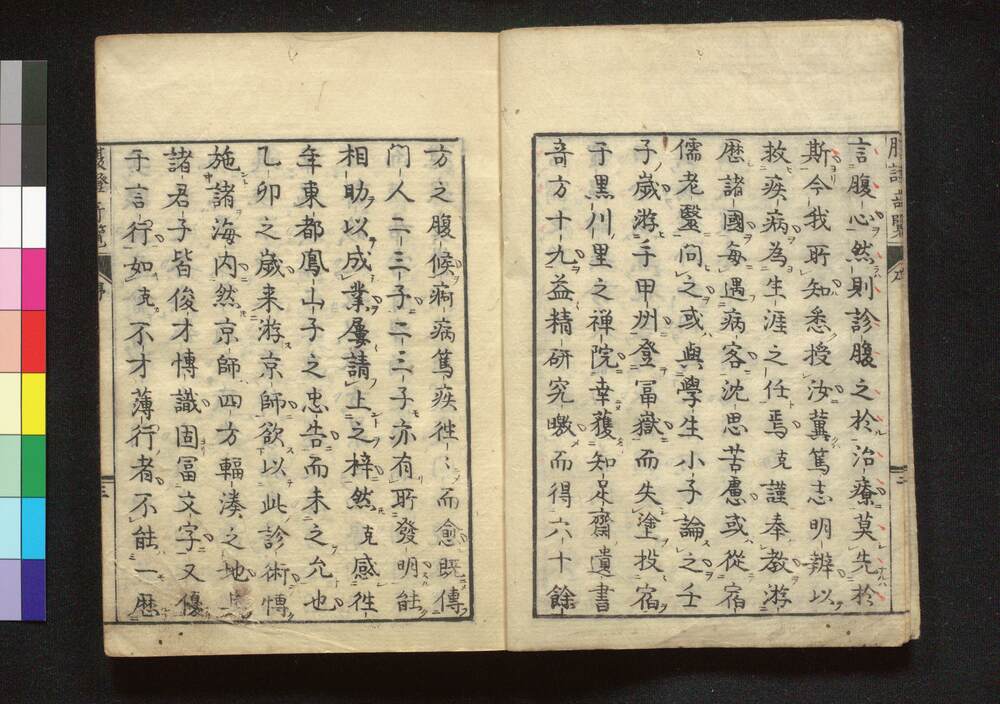 言腹心然則診腹之於治療莫先於
斯今我所知悉授汝冀篤志明辨以
救疾病為生涯之任焉克謹奉教游
歴諸國每遇病客沈思苦慮或從宿
儒老毉問之或與學生小子論之壬
子歲游于甲州登冨嶽而失塗投宿
于黑川里之禅院幸獲知足齋遺書
竒方十九益精研究曒而得六十餘
方之腹候痾病篤疾徃〻而愈既傳
门人二三子二三子亦有所發明能
相助以成業屢請上之梓然克感徃
年東都鳳山子之忠告而未之允也
乙卯之歲来游京師欲以此診術愽
施諸海内然京師四方輻湊之地上
諸君子皆俊才愽識固冨文字又優
于言行如克不才薄行者不能一歴
腹證竒覽
序
三